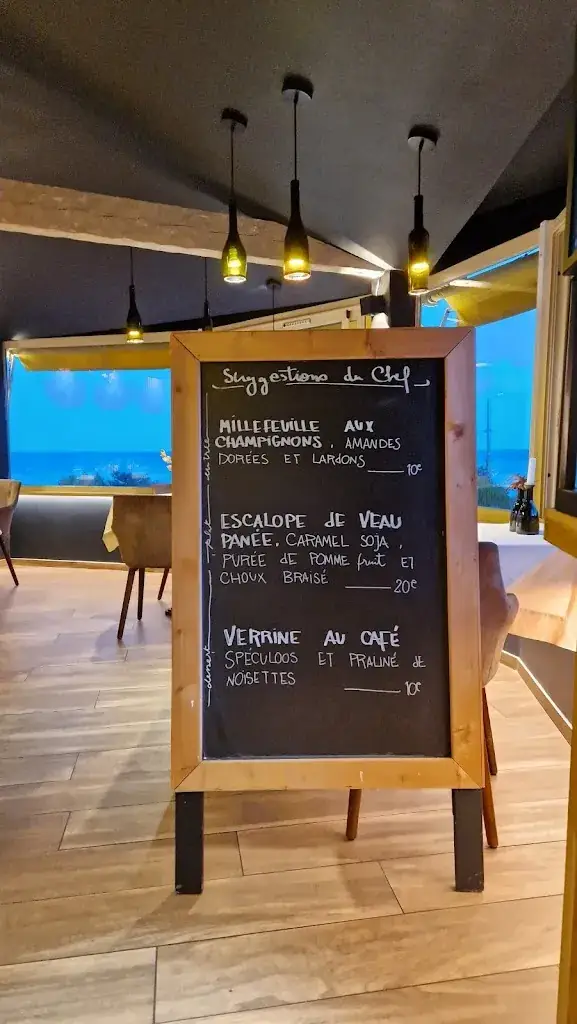 Suggestions du Chef
entrée
MILLEFEUILLE AUX
CHAMPIGNONS, AMANDES
DORÉES ET LARDONS 10€
plat
ESCALOPE de VEAU
PANÉE, CARAMEL SOJA,
PURÉE DE POMME fruit ET
CHOUX BRAISÉ 20€
dessert
VERRINE AU CAFÉ
SPÉCULOOS ET PRALINÉ de
NOISETTES 10€